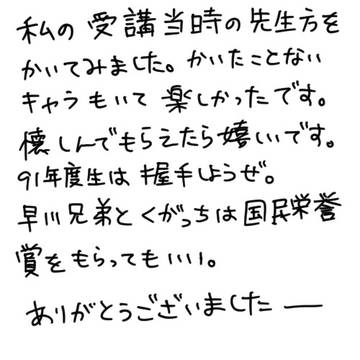 私の受講当時の先生方を
かいてみました。かいたことない
キャラもいて楽しかったです。
懐しんでもらえたら嬉しいです。
91年度生は握手しようぜ。
早川兄弟とくがっちは国民栄誉
賞をもらってもいい。
ありがとうございました—